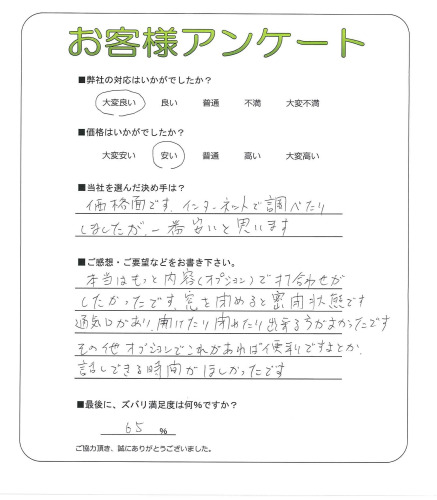 お客様アンケート
■弊社の対応はいかがでしたか？
大変良い 良い 普通 不満 大変不満
■価格はいかがでしたか？
大変安い 安い 普通 高い 大変高い
■当社を選んだ決め手は？
価格面です。インターネットで調べたり
しましたが、一番安いと思います
■ご感想・ご要望などをお書き下さい。
本当はもっと内容（オプション）で打合わせが
したかったです。窓を閉めると密閉状態です
通気口があり、開けたり閉めたり出来る方がよかったです
その他オプションでこれがあれば便利ですよとか、
話しできる時間がほしかったです
■最後に、ズバリ満足度は何％ですか？
65 ％
ご協力頂き、誠にありがとうございました。